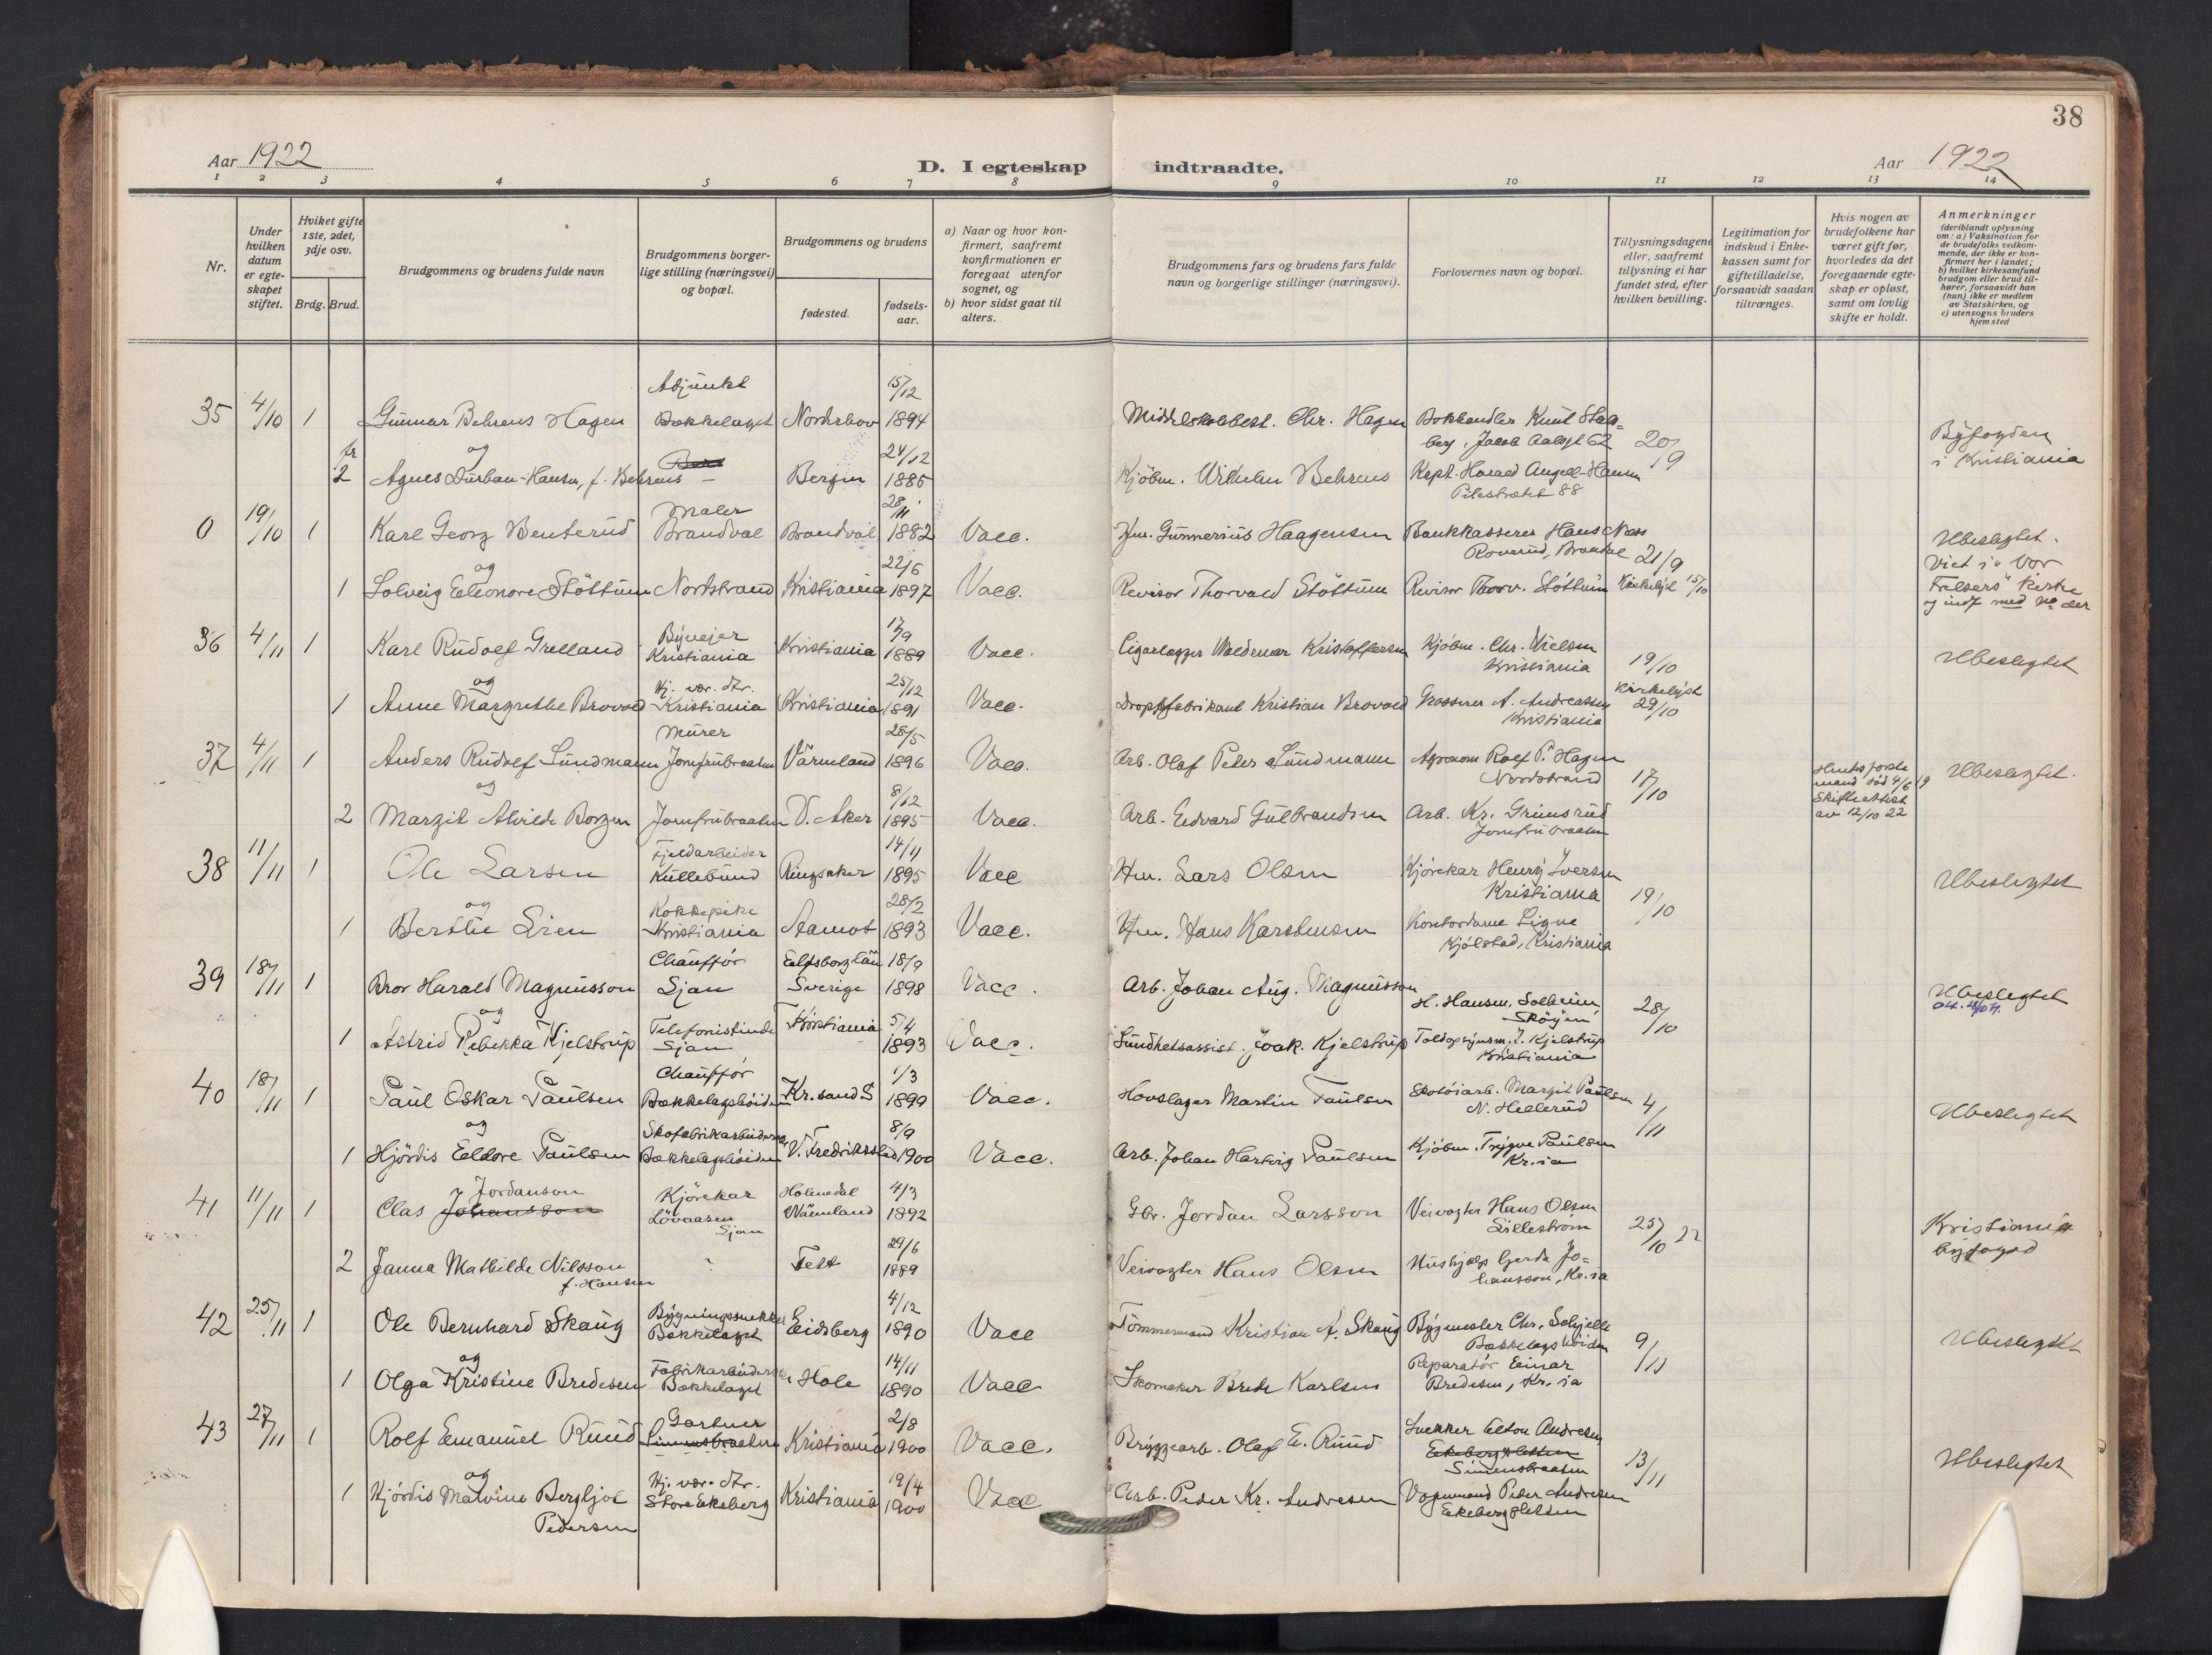 38
Aar 1922
D. I egteskap indtraadte.
Aar 1922
1 2 3 4 5 6 7 8 9 10 11 12 13 14
Nr.
Under hvilken datum er egteskapet stiftet.
Hviket gifte 1ste, 2det, 3dje osv.
Brdg. Brud.
Brudgommens og brudens fulde navn
Brudgommens borgerlige stilling (næringsvei) og bopæl.
Brudgommens og brudens
fødested.
fødselsaar.
a) Naar og hvor konfirmert, saafremt konfirmationen er foregaat utenfor sognet, og
b) hvor sidst gaat til alters.
Brudgommens fars og brudens fars fulde navn og borgerlige stillinger (næringsvei).
Forlovernes navn og bopæl.
Tillysningsdagene eller, saafremt tillysning ei har fundet sted, efter hvilken bevilling.
Legitimation for indskud i Enkekassen samt for giftetilladelse, forsaavidt saadan tiltrænges.
Hvis nogen av brudefolkene har været gift før, hvorledes da det foregaaende egteskap er opløst, samt om lovlig skifte er holdt.
Anmerkninger (deriblandt oplysning om: a) Vaksination for de brudefolks vedkommende, der ikke er konfirmert her i landet; b) hvilket kirkesamfund brudgom eller brud tilhører, forsaavidt han (hun) ikke er medlem av Statskirken, og c) utensogns bruders hjemsted
35 4/10 1 Gunnar Behrens Hagen Adjunkt Bækkelaget Nordrehov 15/12 1894 Middelskolebest. Chr. Hagen Bokhandler Knut Stalsberg, Jacob Aalsgt 62 20/9 Byfogden i Kristiania
og
fr 2 Agnes Durban-Hansen, f. Behrens Bergen 24/12 1885 Kjöbm. Wilhelm Behrens Kapt. Harald Angell-Hansen Pilestrædet 88
0 19/10 1 Karl Georg Benterud Maler Brandval Brandval 28/11 1882 Vacc. Gunnerius Haagensen Bankkasserer Hans Næss Roverud, Brandval 21/9 Ubeslegtet. Viet i "Vor Frelsers" kirke og indf med No der
og
1 Solveig Eleonore Stöttum Nordstrand Kristiania 22/6 1897 Vacc. Revisor Thorvald Stöttum Revisor Thorv. Stöttum Kirkelyst 15/10
36 4/11 1 Karl Rudolf Grelland Byveier Kristiania Kristiania 17/9 1889 Vacc. Cigarlægger Waldemar Kristoffersen Kjöbm. Chr. Nielsen Kristiania 19/10 Ubeslegtet
og
1 Anne Margrethe Brovold Hj. vær. dtr. Kristiania Kristiania 25/12 1891 Vacc. Dropsfabrikant Kristian Brovold Grosserer A. Andreassen Kristiania Kirkelyst 29/10
37 4/11 1 Anders Rudolf Sundmann Murer Jomfrubraaten Värmland 28/5 1896 Vacc. Arb. Olaf Peter Sundmann Agronom Rolf P. Hagen Nordstrand 17/10 Hendes første mand død 4/6 19 Skifteattest av 12/10 22 Ubeslegtet.
og
2 Margit Alvilde Borgen Jomfrubraaten V. Aker 8/12 1895 Vacc. Arb. Edvard Gulbrandsen Arb. Kr. Grimsrud Jomfrubraaten
38 11/11 1 Ole Larsen Fjeldarbeider Kullebund Ringsaker 14/11 1895 Vacc Hm. Lars Olsen Kjörekar Henry Iversen Kristiania 19/10 Ubeslegtet
og
1 Berthe Lien Kokkepike Kristiania Aamot 28/2 1893 Vacc. Hm. Hans Karstensen Kontordame Signe Kjölstad, Kristiania
39 18/11 1 Bror Harald Magnusson Chauffór Ljan Elfsborg län Sverige 18/9 1898 Vacc. Arb. Johan Aug. Magnusson H. Hansen, Solheim Sköyen 28/10 Ubeslegtet
og
1 Astrid Rebekka Kjelstrup Telefonistinde Ljan Kristiania 5/4 1893 Vacc. Sundhetsassist. Joak. Kjelstrup Toldopsynsm. J. Kjelstrup Kristiania
40 18/11 1 Paul Oskar Paulsen Chauffór Bækkelagshöiden Kr.sand S 1/3 1899 Vacc. Hovslager Martin Paulsen Skotöiarb. Margit Paulsen N. Hellerud 4/11 Ubeslegtet
og
1 Hjördis Eldore Paulsen Skofabrikarbeiderske Bækkelagshöiden V. Fredrikstad 8/9 1900 Vacc. Arb. Johan Hartvig Paulsen Kjöbm. Trygve Paulsen Kr.ia
41 11/11 1 Clas Johansson Jordanson Kjörekar Lövaasen Ljan Holmedal Wärmland 4/3 1892 Gbr. Jordan Larsson Veivogter Hans Olsen Lilleström 25/10 22 Kristiania byfogd
2 Janna Mathilde Nilsson f. Hansen Fett 29/6 1889 Veivogter Hans Olsen Hushjælp Gerda Johansson, Kr.ia
42 25/11 1 Ole Bernhard Skaug Bygningssnekker Bækkelaget Eidsberg 4/12 1890 Vacc Tömmermand Kristian A. Skaug Bygmester Chr. Schjelle Bækkelagshöiden 9/11 Ubeslegtet
og
1 Olga Kristine Bredesen Fabrikarbeiderske Bækkelaget Hole 14/11 1890 Vacc Skomaker Brede Karlsen Reparatör Einar Bredesen, Kr.ia
43 27/11 1 Rolf Emanuel Ruud Gartner Simensbraaten Kristiania 2/8 1900 Vacc. Bryggearb. Olaf E. Ruud Snekker Anton Andresen Ekebergsletten Simensbraaten 13/11 Ubeslegtet
og
1 Hjördis Malvine Bergljot Pedersen Hj. vær. dtr. Store Ekeberg Kristiania 19/4 1900 Vacc Arb. Peder Kr. Andresen Vognmand Peder Andresen Ekebergsletten